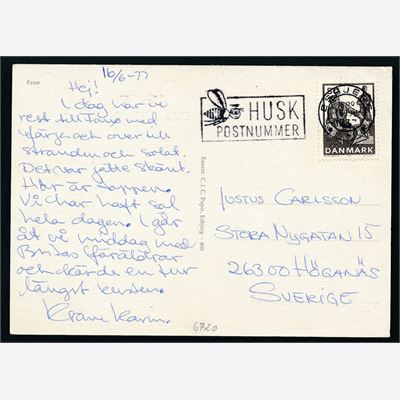 Fanø
16/6-77
Hej!
I dag har vi
rest till Fanø med
färja och över till
stranden och solat.
Det var jätte skönt.
Här är toppen.
Vi har haft sol
hela dagen. I går
åt vi middag med
Britas föräldrar
och körde en tur
längst kusten.
Kram Karin.
Eneret: C.I.C. Papir, Esbjerg - 806
HUSK
POSTNUMMER
ESBJERG
DANMARK
JUSTUS CARLSSON
STORA NYGATAN 15
26300 HÖGANÄS
SVERIGE
6720